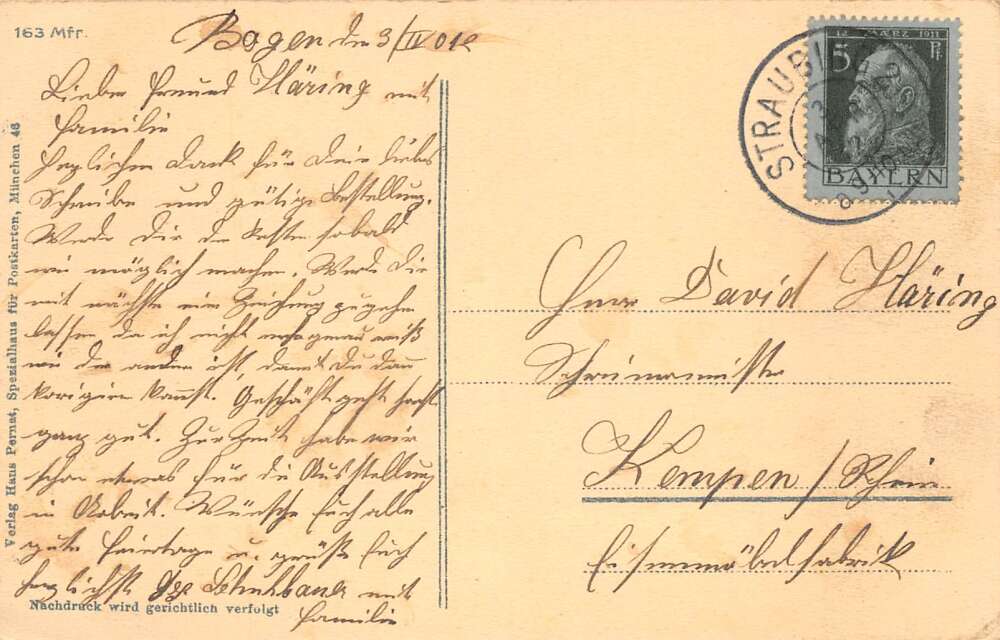 163 Mfr.
Bogen den 3/IV 012
Lieber Freund Häring mit
Familie
Herzlichen Dank für Dein liebes
Schreiben und gütige Bestellung.
Werde Dir den Kasten sobald
wie möglich machen. Werde Dir
mit nächsten ein Zeichnung zugehen
lassen da ich nicht genau weiß
wie der andere ist, damit Du dann
korigiren kannst. Geschäft geht sonst
ganz gut. Zur Zeit habe wir
schon etwas für die Ausstellung
in Arbeit. Wünsche Euch alle
gute Feiertage u. grüßt Euch
herzlichst Schuhbauer mit
Familie
Verlag Hans Pernat, Spezialhaus für Postkarten, München 46
Nachdruck wird gerichtlich verfolgt
12 MÄRZ 1911
5 Pf
BAYERN
STRAUBING
Herrn David Häring
Schreinermeister
Kempen / Rhein
Eisenmöbelfabrik